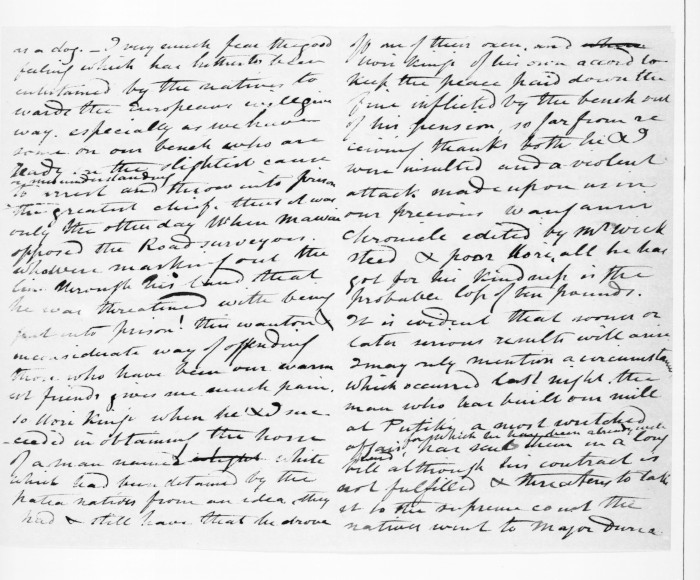 as a dog. — I very much fear the good
feeling which has hitherto been
entertained by the natives to
wards the Europeans will give
way. especially as we have
some on our bench who are
ready on the slightest cause
or misunderstanding
to arrest and throw into prison
the greatest chief. thus it was
only the other day when Mawae
opposed the Road surveyors.
who were marking out the
line through his land that
he was threatened with being
put into prison! this wanton &
inconsiderate way of offending
those who have been our warm
est friends gives me much pain.
so Hori Kingi when he & I suc
-ceeded in obtaining the horse
of a man named white
which had been detained by the
patea natives from an idea they
had & still have that he drove
off one of their oxen. and
Hori Kingi of his own accord to
keep the peace paid down the
fine inflicted by the bench out
of his pension, so far from re
ceiving thanks both he & I
were insulted and a violent
attack made upon us in
our precious Wanganui
Chronicle edited by Mr Wick
steed & poor Hori, all he has
got for his kindness is the
probable loss of ten pounds.
It is evident that sooner or
later serious results will arise
I may only mention a circumstance
which occurred last night. the
man who has built our mill
at Patiky a most wretched
affair, for which he has been already well
paid, has sent them in a long
bill although his contract is
not fulfilled & threatens to take
it to the supreme court the
natives went to Major Durie